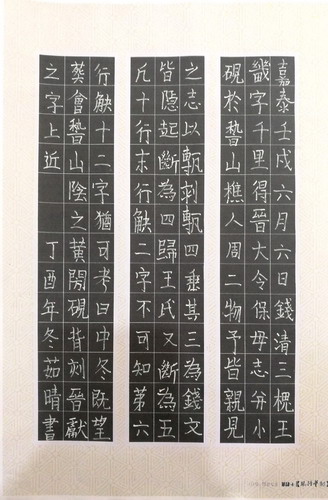 嘉泰壬戌六月六日錢清三槐王
畿字千里得晉大令保母志并小
硯於稽山樵人周二物予皆親見
之志以甎刻甎四垂其三為錢文
皆隱起斷為四歸王氏又斷為五
凡十行末行缺二字不可知第六
行缺十二字猶可考曰中冬既望
葬會稽山陰之黃閍硯背刻晉獻
之字上近 丁酉年冬茹晴書